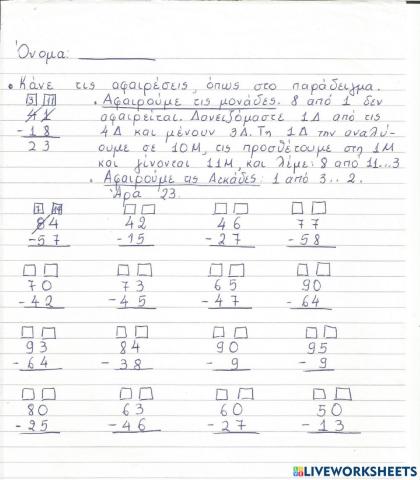 Όνομα:
• Κάνε τις αφαιρέσεις, όπως στο παράδειγμα.
3 11 • Αφαιρούμε τις μονάδες. 8 από 1 δεν
41 αφαιρείται. Δανειζόμαστε 1Δ από τις
-18 4Δ και μένουν 3Δ. Τη 1Δ την αναλύ-
23 ουμε σε 10Μ, τις προσθέτουμε στη 1Μ
και γίνονται 11Μ, και λέμε: 8 από 11...3
• Αφαιρούμε τις Δεκάδες: 1 από 3.. 2.
Άρα 23.
84 42 46 77
-57 -15 -27 -58
70 73 65 90
-42 -45 -47 -64
93 84 90 95
-64 -38 -9 -9
80 63 60 50
-25 -46 -27 -13
LIVEWORKSHEETS